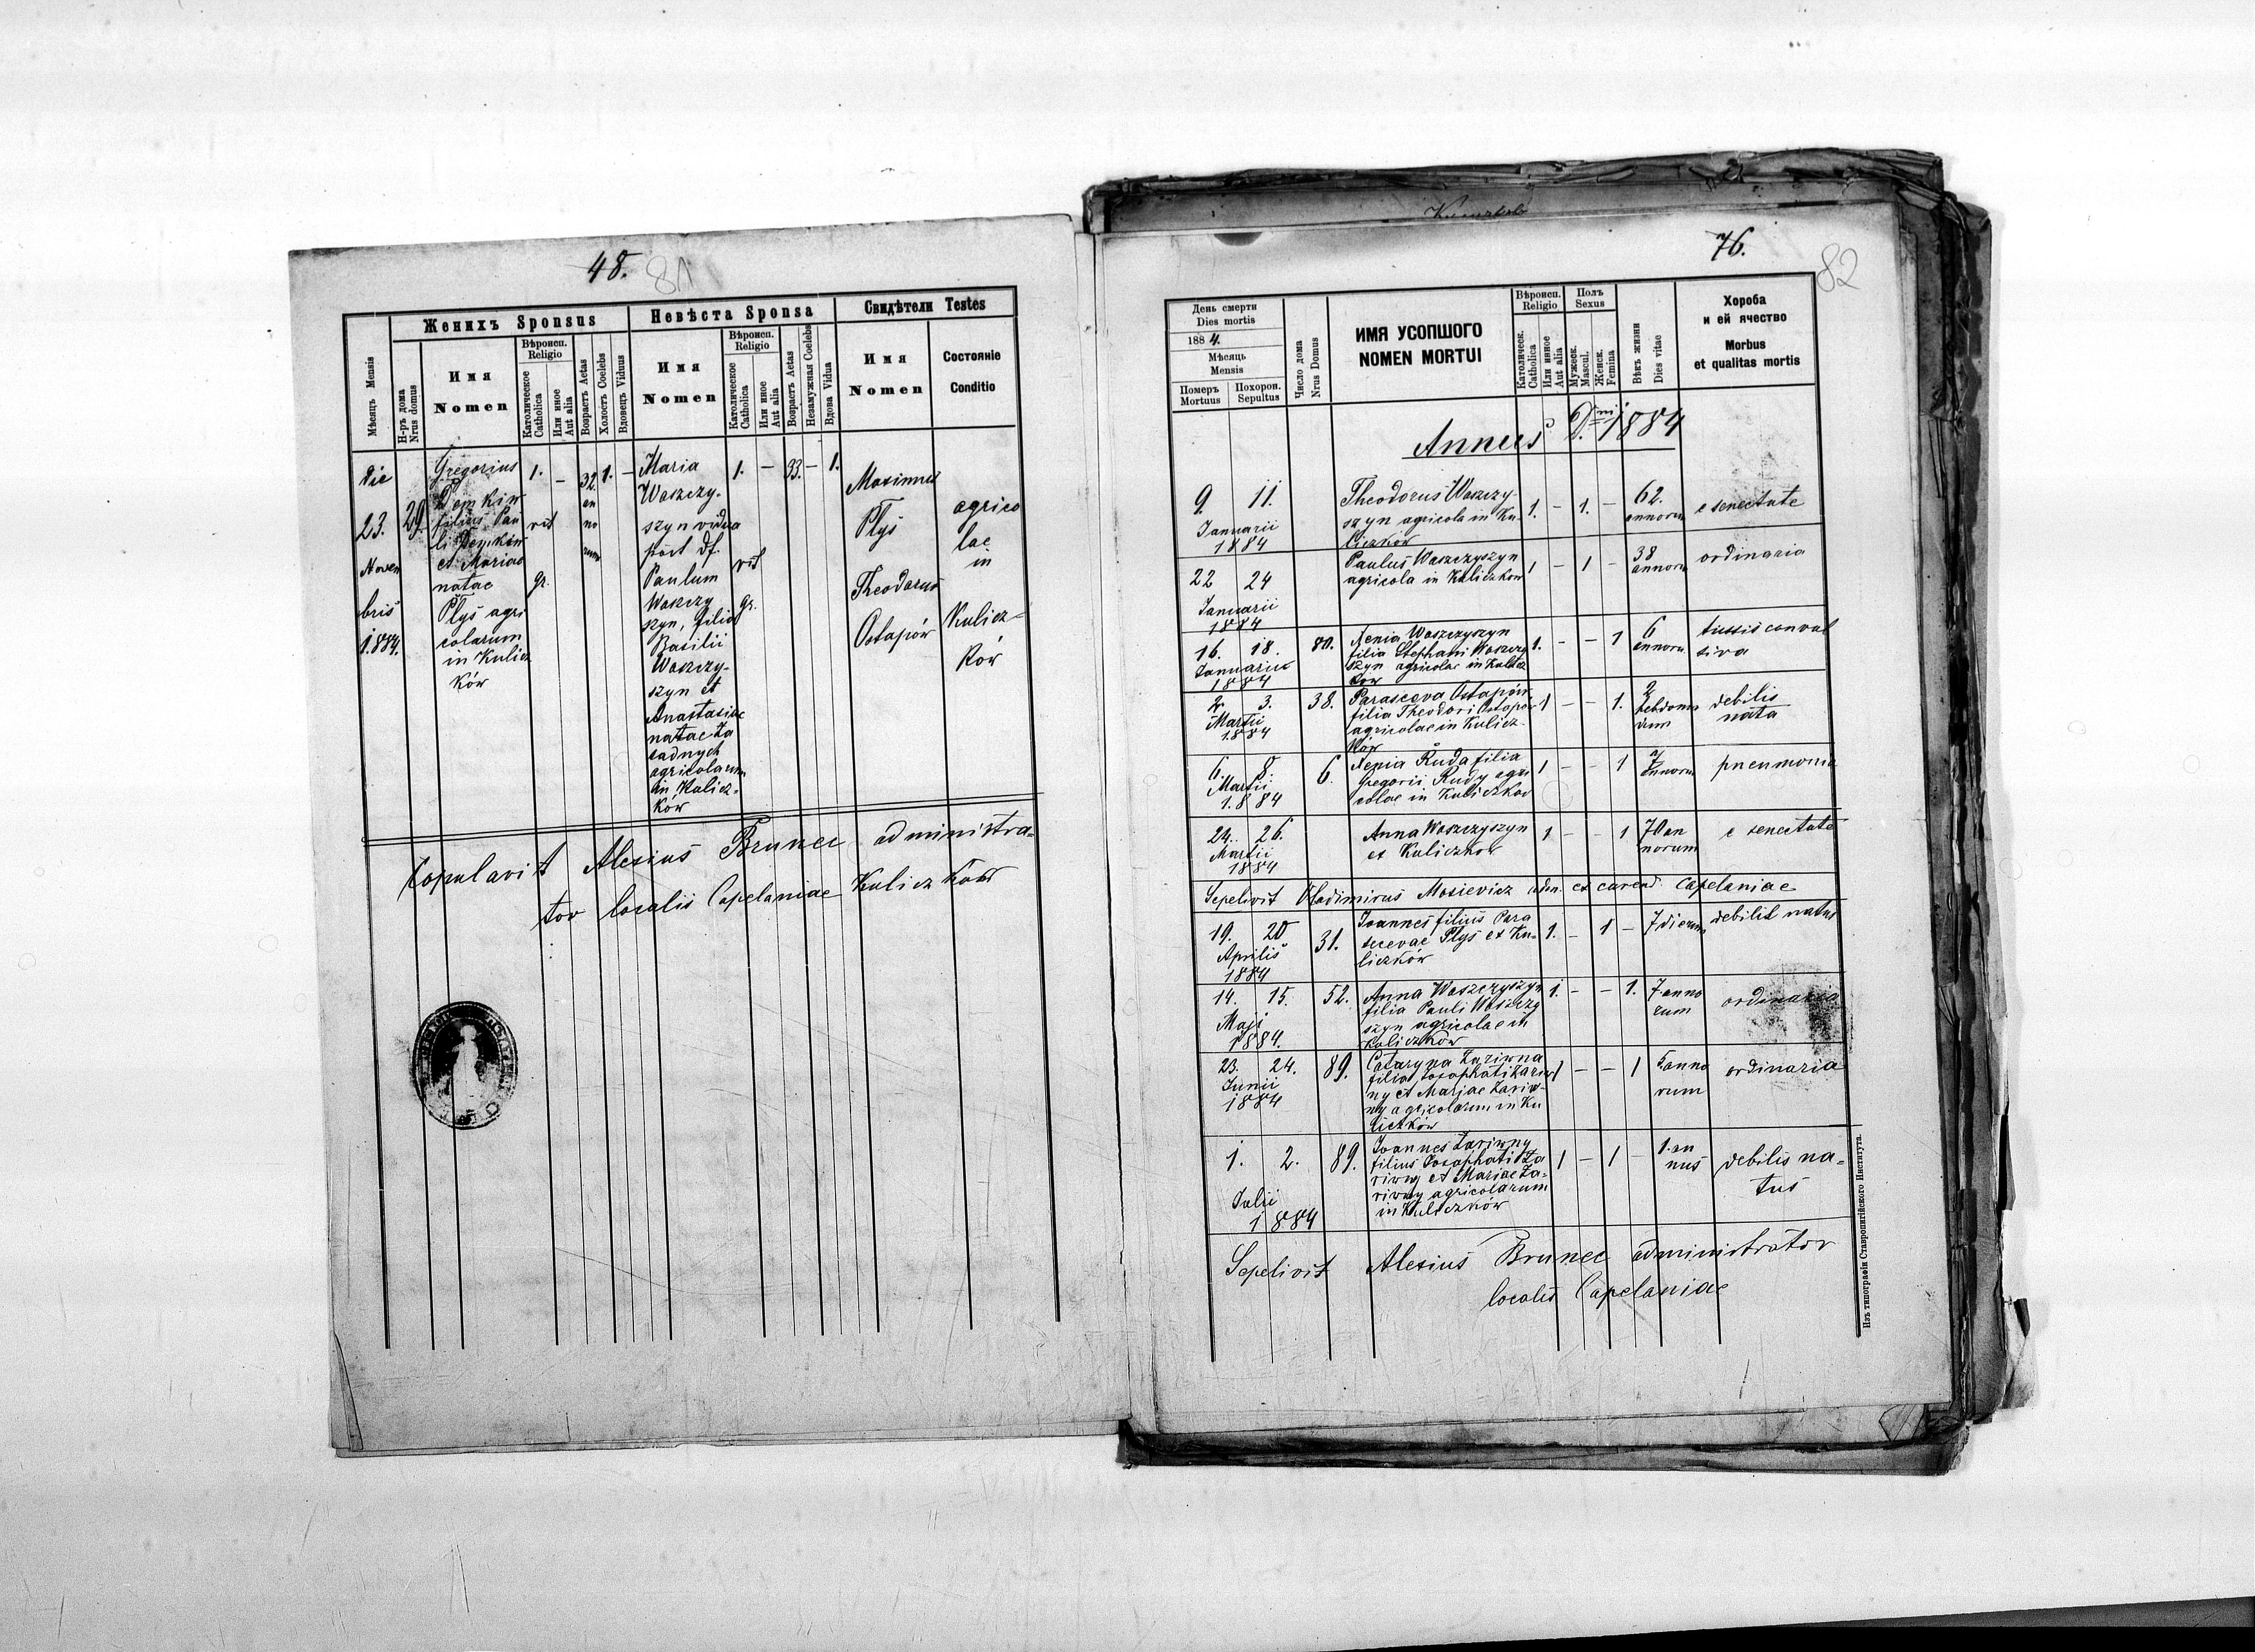 48.
81
Женихъ Sponsus
Невѣста Sponsa
Свидѣтели Testes
Мѣсяцъ Mensis
Н-ръ дома
Nrus domus
Имя
Nomen
Вѣроисп.
Religio
Католическое
Catholica
Или иное
Aut alia
Возрастъ Aetas
Холостъ Coelebs
Вдовецъ Viduus
Имя
Nomen
Вѣроисп.
Religio
Католическое
Catholica
Или иное
Aut alia
Возрастъ Aetas
Незамужная Coelebs
Вдова Vidua
Имя
Nomen
Состояніе
Conditio
Die
23.
Novem
bris
1884.
29.
Gregorius
Demkiw
filius Pau
li Demkiw
et Mariae
natae
Płyś agri
colarum
in Kulicz
ków
1.
rit
gr.
–
32.
an
no
rum
1.
–
Maria
Woszczy-
szyn vidua
post df.
Paulum
Woszczy
szyn, filia
Basilii
Woszczy-
szyn et
Anastasiae
natae Za
sadnych
agricolarum
in Kulicz-
ków
1.
rit
gr.
–
33.
–
1.
Maximus
Płyś
Theodorus
Ostapów
agrico
lae
in
Kulicz-
ków
Copulavit Alexius Brunec administra-
tor localis Capelaniae Kuliczków
76.
82
День смерти
Dies mortis
1884.
Мѣсяць
Mensis
Померъ
Mortuus
Похорон.
Sepultus
Число дома
Nrus Domus
ИМЯ УСОПШОГО
NOMEN MORTUI
Вѣроисп.
Religio
Католическ.
Catholica
Или инное
Aut alia
Полъ
Sexus
Мужеск.
Mascul.
Женск.
Femina
Вѣкъ жизни
Dies vitae
Хороба
и ей ячество
Morbus
et qualitas mortis
Annus Dni 1884
9. 11.
Januarii
1884
Theodorus Woszczy-
szyn agricola in Ku-
liczków
1. – 1. –
62.
annorum
e senectute
22 24
Januarii
1884
Paulus Woszczyszyn
agricola in Kuliczkow
1 – 1 –
38
annorum
ordinaria
16. 18.
Januarius
1884
80.
Xenia Woszczyszyn
filia Stephani Woszczy
szyn agricolae in Kulicz
ków
1. – – 1
6
annoru
tussis convul
siva
2. 3.
Martii
1884
38.
Parasceva Ostapów
filia Theodori Ostapów
agricolae in Kulicz-
ków
1 – – 1.
2
hebdoma
dum
debilis
nata
6. 8.
Martii
1884
6.
Xenia Ruda filia
Gregorii Rudy agri
colae in Kuliczkow
1 – – 1
annorum
pneumonia
24. 26.
Martii
1884
Anna Woszczyszyn
ex Kuliczkow
1 – – 1
70 an
norum
e senectute
Sepelivit Vladimirus Mosiewicz adm. ex curend. Capelaniae
19. 20
Aprilis
1884
31.
Joannes filius Para
scevae Płyś ex Ku-
liczków
1. – 1 –
7 dierum
debilis natus
14. 15.
Maji
1884.
52.
Anna Woszczyszyn
filia Pauli Woszczy
szyn agricolae in
Kuliczków
1. – – 1.
7 anno
rum
ordinaria
23. 24.
Junii
1884
89.
Cataryna Zariwna
filia Josaphati Zariw
ny et Marjae Zariw-
ny agricolarum in Ku
liczków
1 – – 1
5 anno
rum
ordinaria
1. 2.
Julii
1884
89.
Joannes Zariwny
filius Josaphati Za
riwny et Mariae Za-
riwny agricolarum
in Kuliczków
1 – 1 –
1. an
nus
debilis na-
tus
Sepelivit Alexius Brunec administrator
localis Capelaniae
Изъ типографіи Ставропигійского Института.